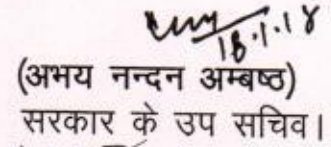 18.1.18
(अभय नन्दन अम्बष्ठ)
सरकार के उप सचिव।